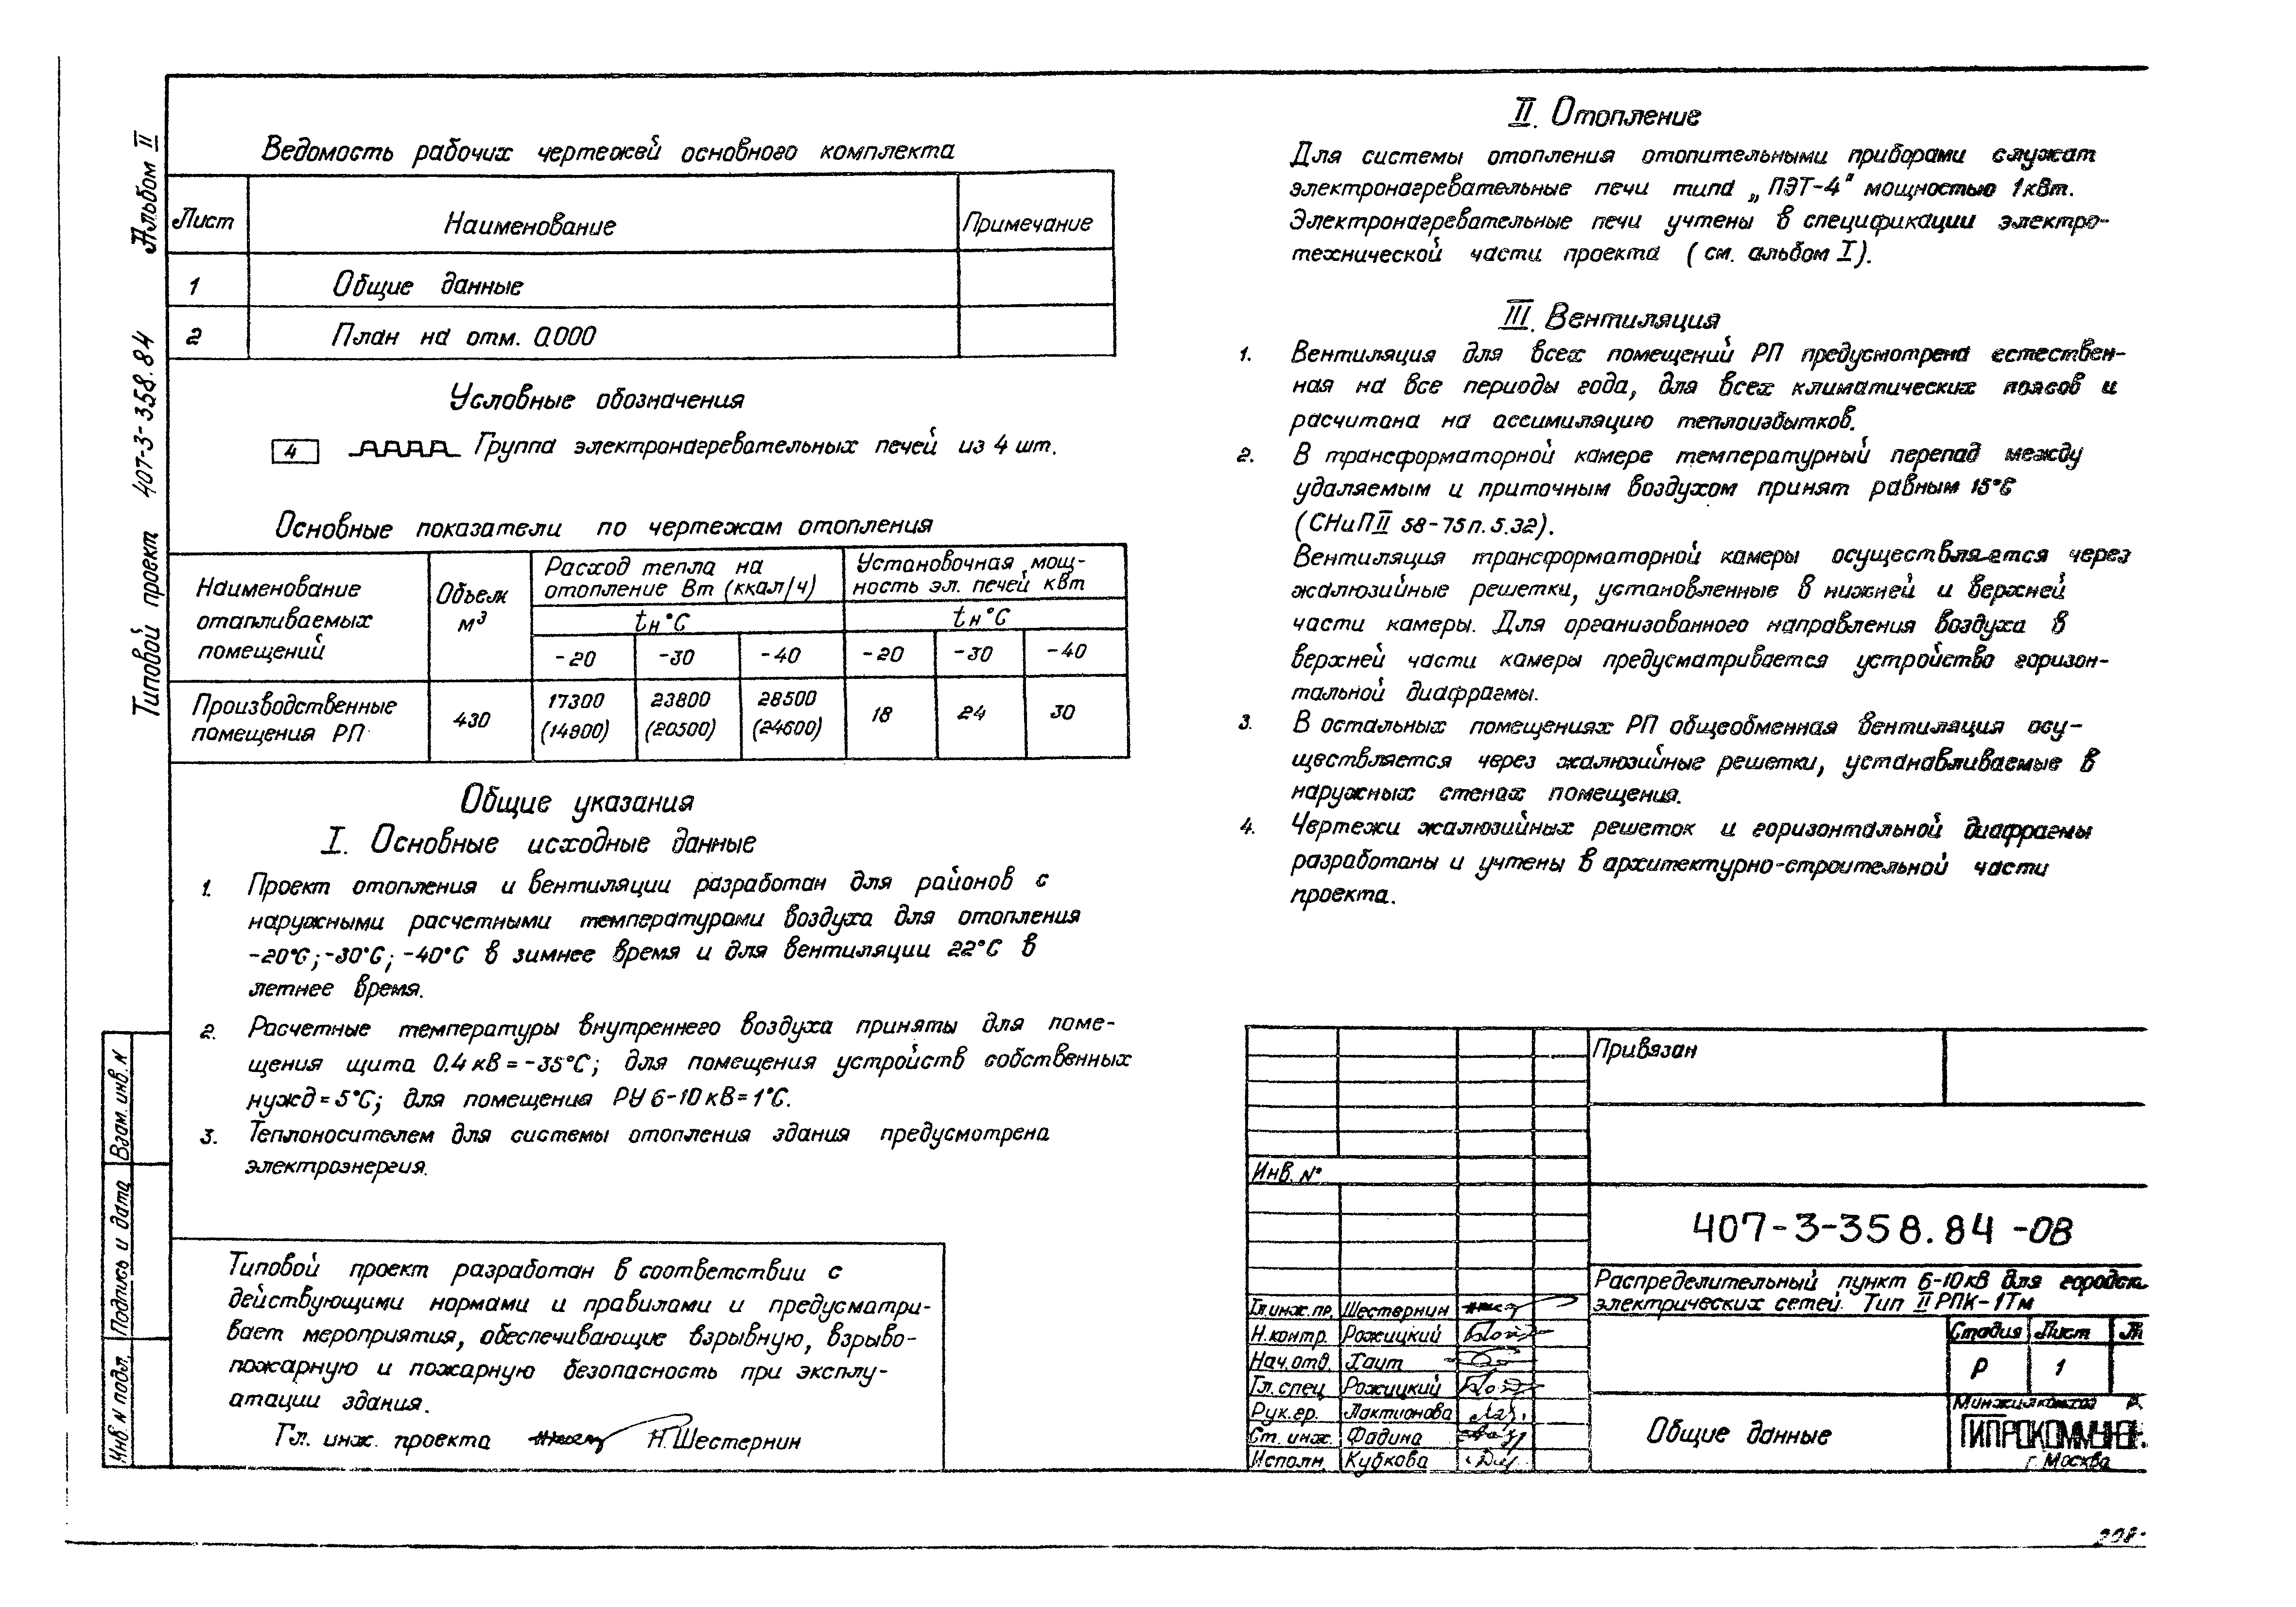 Альбом II
Типовой проект 407-3-358.84
Ведомость рабочих чертежей основного комплекта
Лист Наименование Примечание
1 Общие данные
2 План на отм. 0.000
Условные обозначения
4 Группа электронагревательных печей из 4 шт.
Основные показатели по чертежам отопления
Наименование отапливаемых помещений
Объем м³
Расход тепла на отопление Вт (ккал/ч)
Установочная мощ-
ность эл. печей кВт
tн°С tн°С
-20 -30 -40 -20 -30 -40
Производственные помещения РП 430 17300 (14900) 23800 (20500) 28500 (24600) 18 24 30
Общие указания
I. Основные исходные данные
1. Проект отопления и вентиляции разработан для районов с
наружными расчетными температурами воздуха для отопления
-20°С; -30°С; -40°С в зимнее время и для вентиляции 22°С в
летнее время.
2. Расчетные температуры внутреннего воздуха приняты для поме-
щения щита 0.4 кВ = -35°С; для помещения устройств собственных
нужд = 5°С; для помещения РУ 6-10 кВ = 1°С.
3. Теплоносителем для системы отопления здания предусмотрена
электроэнергия.
Типовой проект разработан в соответствии с
действующими нормами и правилами и предусматри-
вает мероприятия, обеспечивающие взрывную, взрыво-
пожарную и пожарную безопасность при эксплу-
атации здания.
Гл. инж. проекта Н. Шестернин
II. Отопление
Для системы отопления отопительными приборами служат
электронагревательные печи типа „ПЭТ-4" мощностью 1 кВт.
Электронагревательные печи учтены в спецификации электро-
технической части проекта (см. альбом I).
III. Вентиляция
1. Вентиляция для всех помещений РП предусмотрена естествен-
ная на все периоды года, для всех климатических поясов и
расчитана на ассимиляцию теплоизбытков.
2. В трансформаторной камере температурный перепад между
удаляемым и приточным воздухом принят равным 15°С
(СНиП II 58-75 п. 5.32).
Вентиляция трансформаторной камеры осуществляется через
жалюзийные решетки, установленные в нижней и верхней
части камеры. Для организованного направления воздуха в
верхней части камеры предусматривается устройство горизон-
тальной диафрагмы.
3. В остальных помещениях РП общеобменная вентиляция осу-
ществляется через жалюзийные решетки, устанавливаемые в
наружных стенах помещения.
4. Чертежи жалюзийных решеток и горизонтальной диафрагмы
разработаны и учтены в архитектурно-строительной части
проекта.
Взам. инв. N
Подпись и дата
Инв N подл.
Привязан
Инв. N°
407-3-358.84 -ОВ
Распределительный пункт 6-10 кВ для городск
электрических сетей. Тип II РПК-1Тм
Гл. инж. пр. Шестернин
Н. контр. Рожицкий
Нач. отд. Хаит
Гл. спец Рожицкий
Рук. гр. Лактионова
Ст. инж. Фадина
Исполн. Кубкова
Стадия Лист
Р 1
Общие данные
ГИПРОКОММУНЭ
г. Москва